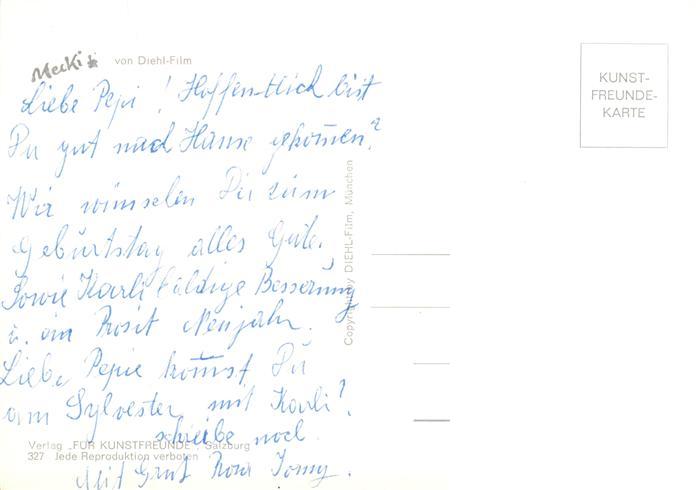 Mecki von Diehl-Film
KUNST-
FREUNDE-
KARTE
Liebe Pepi! Hoffentlich bist
Du gut nach Hause gekom̅en?
Wir wünschen Dir zum
Geburtstag alles Gute,
Sowie Karli baldige Besserung
u. ein Prosit Neujahr.
Liebe Pepie kom̅st Du
am Sylvester mit Karli?
schreibe noch.
Mit Gruß Tomy.
Copyright by DIEHL-Film, München
Verlag „FÜR KUNSTFREUNDE", Salzburg
327 Jede Reproduktion verboten